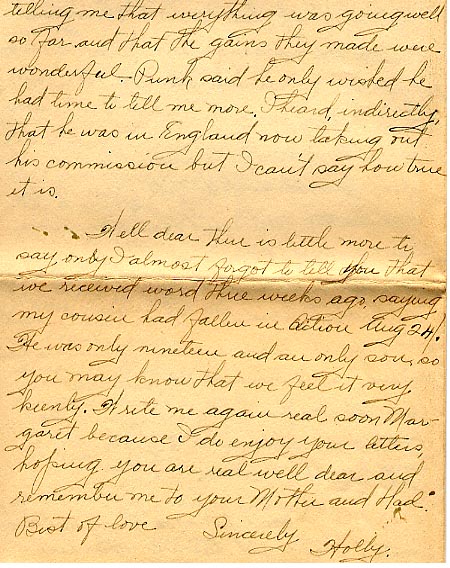 telling me that everything was going well
so far and that the gains they made were
wonderful. Punk said he only wished he
had time to tell me more. I heard, indirectly,
that he was in England now taking out
his commission but I can't say how true
it is.
Well dear there is little more to
say only I almost forgot to tell you that
we received word three weeks ago saying
my cousin had fallen in action Aug 24.
He was only nineteen and an only son, so
you may know that we feel it very
keenly. Write me again real soon Mar-
garet because I do enjoy your letters,
hoping you are real well dear and
remember me to your Mother and Dad.
Best of love
Sincerely
Holly.